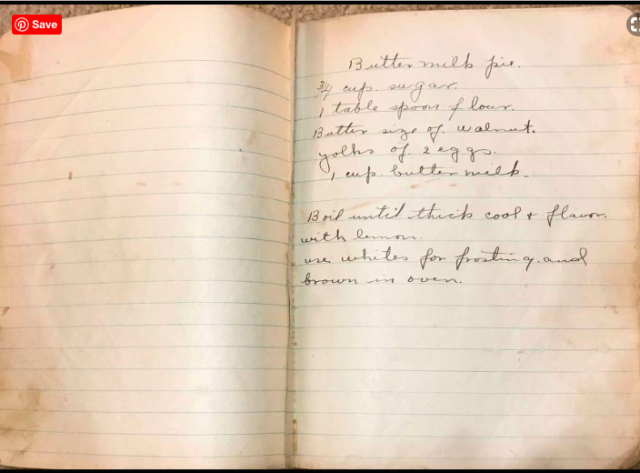 Save
Butter milk pie.
3/4 cup. sugar.
1 table spoon flour.
Butter size of walnut.
yolks of 2 eggs.
1 cup butter milk.
Boil until thick cool + flavor
with lemon.
use whites for frosting and
brown in oven.